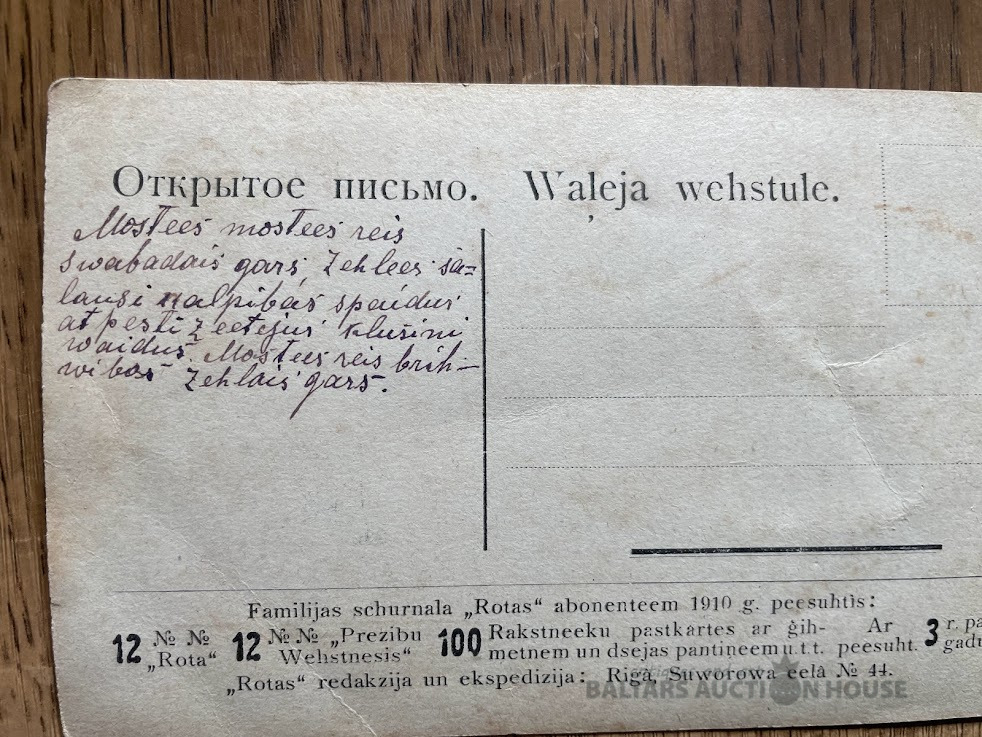 Открытое письмо. Waļeja wehstule.
Mostees mostees reis
swabadais gars zehlees sa=
lausi kalpibas spaidus
atpestì zeetejus klusini
waidus. Mostees reis brih-
wibas zehlais gars.
Familijas schurnala „Rotas“ abonenteem 1910 g. peesuhtis:
12 № № „Rota“ 12 № № „Prezibu Wehstnesis“ 100 Rakstneeku pastkartes ar ģih- Ar 3 r.
metnem un dsejas pantiņeem u.t.t. peesuht.
„Rotas“ redakzija un ekspedizija: Rigà, Suworowa eelà № 44.
BALTARS AUCTION HOUSE